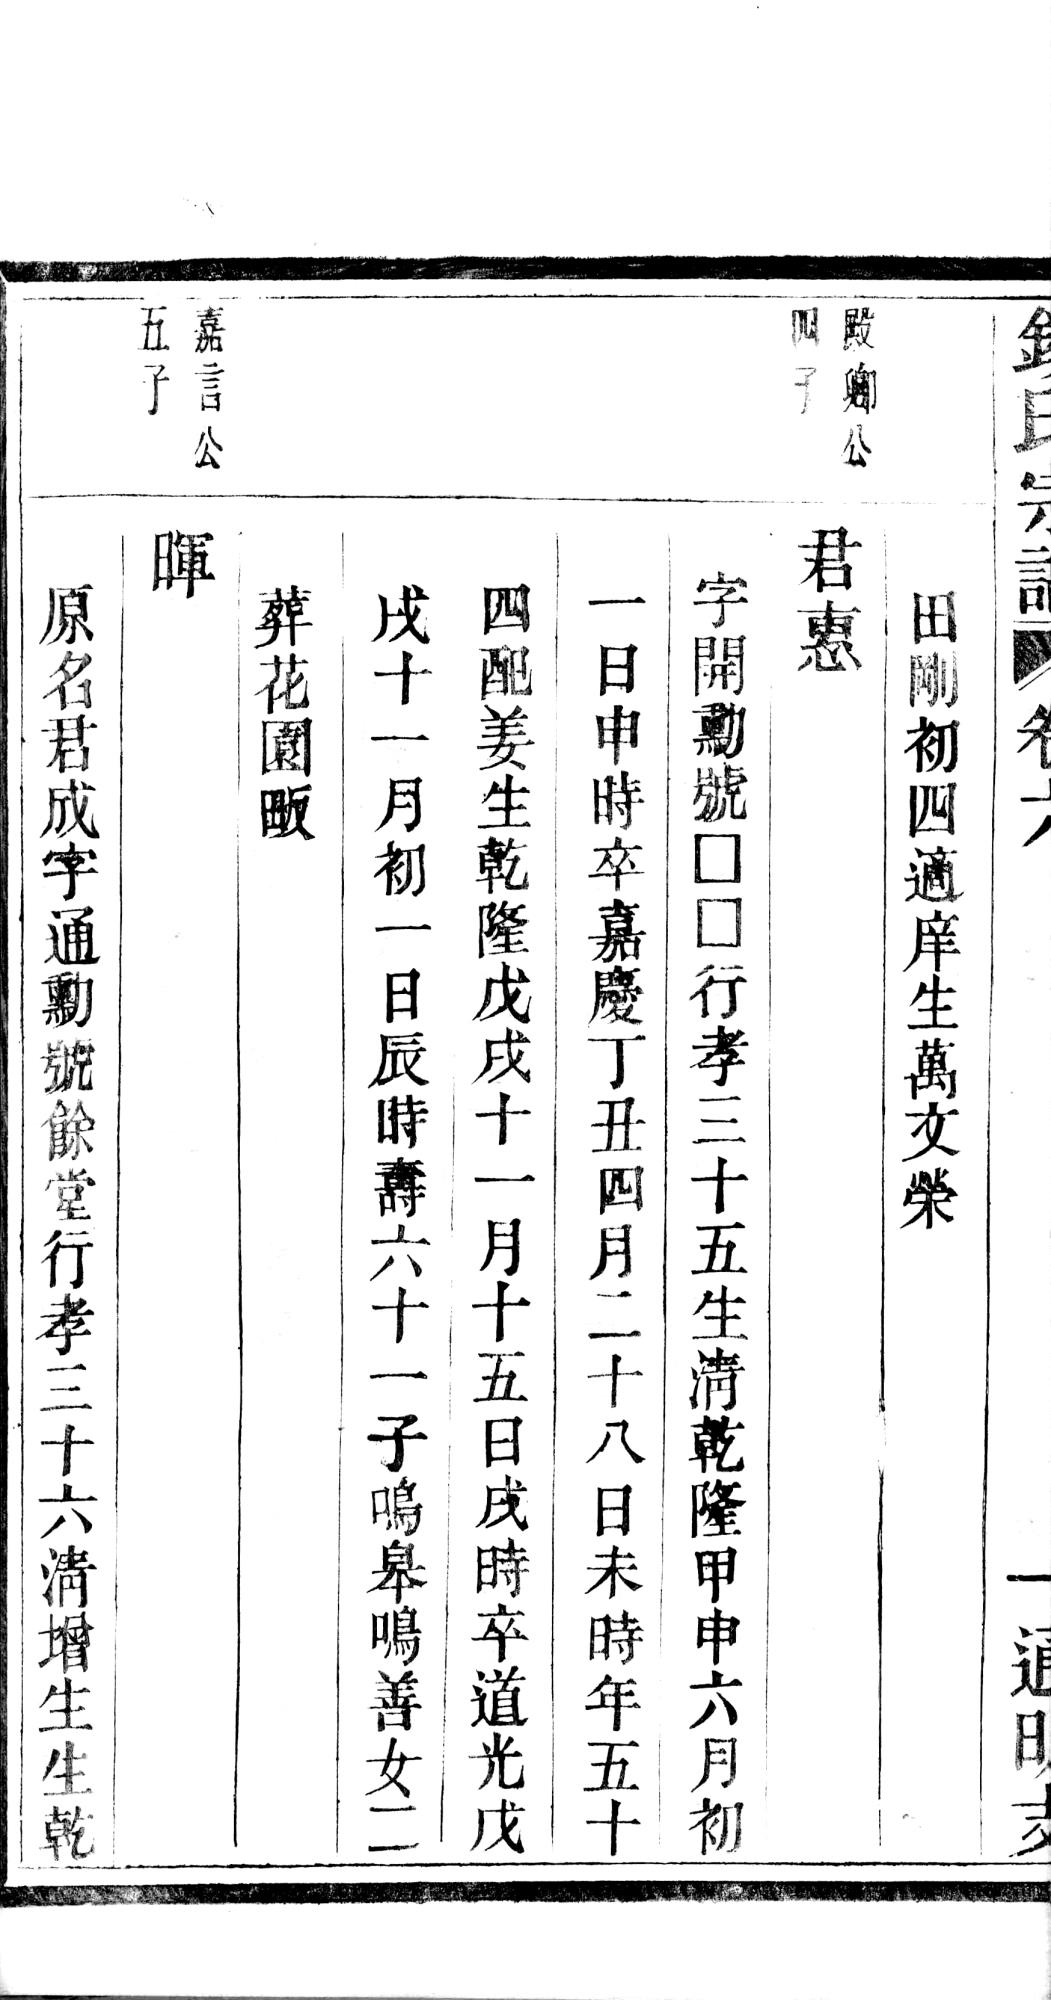 氏宗譜 卷六 一 通明支
田剛初四適庠生萬文榮
殿卿公
四子
君惠
字開勳號□□行孝三十五生清乾隆甲申六月初
一日申時卒嘉慶丁丑四月二十八日未時年五十
四配姜生乾隆戊戌十一月十五日戌時卒道光戊
戌十一月初一日辰時壽六十一子鳴皋鳴善女二
葬花園畈
嘉言公
五子
暉
原名君成字通勳號餘堂行孝三十六清增生生乾